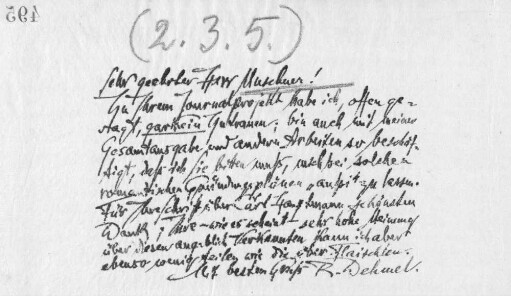 495
(2. 3. 5.)
Sehr geehrter Herr Muschner!
Zu Ihrem Journalprojekt habe ich, offen ge-
sagt, garkein Zutrauen; bin auch mit meiner
Gesamtausgabe und andern Arbeiten so beschäf-
tigt, daß ich Sie bitten muß, mich bei solchen
romantischen Gründungsplänen aus zu lassen.
Für Ihre Schrift über Carl Hauptmann schönsten
Dank; Ihre – wie es scheint – sehr hohe Meinung
über diesen angeblich Verkannten kann ich aber
ebenso wenig teilen wie die über Flaischlen.
Mit bestem Gruß R. Dehmel.